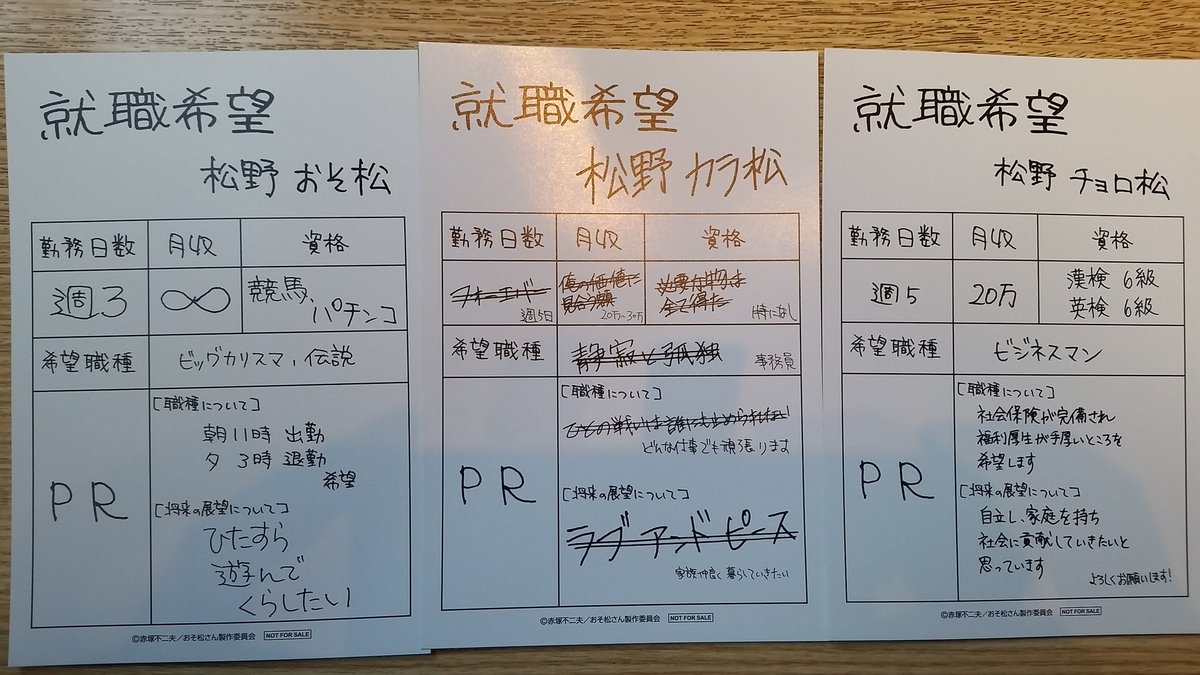 就職希望
松野 おそ松
勤務日数 月収 資格
週3 ∞ 競馬、
パチンコ
希望職種 ビッグカリスマ、伝説
PR
[職種について]
朝11時 出勤
夕 3時 退勤
希望
[将来の展望について]
ひたすら
遊んで
くらしたい
©赤塚不二夫/おそ松さん製作委員会 NOT FOR SALE
就職希望
松野 カラ松
勤務日数 月収 資格
フォーエバー 俺の価値に 必要な物は
見合う額 全て得た
週5日 20万~30万 特になし
希望職種 静寂と孤独 事務員
PR
[職種について]
ひとの戦いは誰にも止められない
どんな仕事でも頑張ります
[将来の展望について]
ラブ アンド ピース
家族仲良く暮らしていきたい
©赤塚不二夫/おそ松さん製作委員会 NOT FOR SALE
就職希望
松野 チョロ松
勤務日数 月収 資格
週5 20万 漢検 6級
英検 6級
希望職種 ビジネスマン
PR
[職種について]
社会保険が完備され
福利厚生が手厚いところを
希望します
[将来の展望について]
自立し、家庭を持ち
社会に貢献していきたいと
思っています
よろしくお願いします!
©赤塚不二夫/おそ松さん製作委員会 NOT FOR SALE